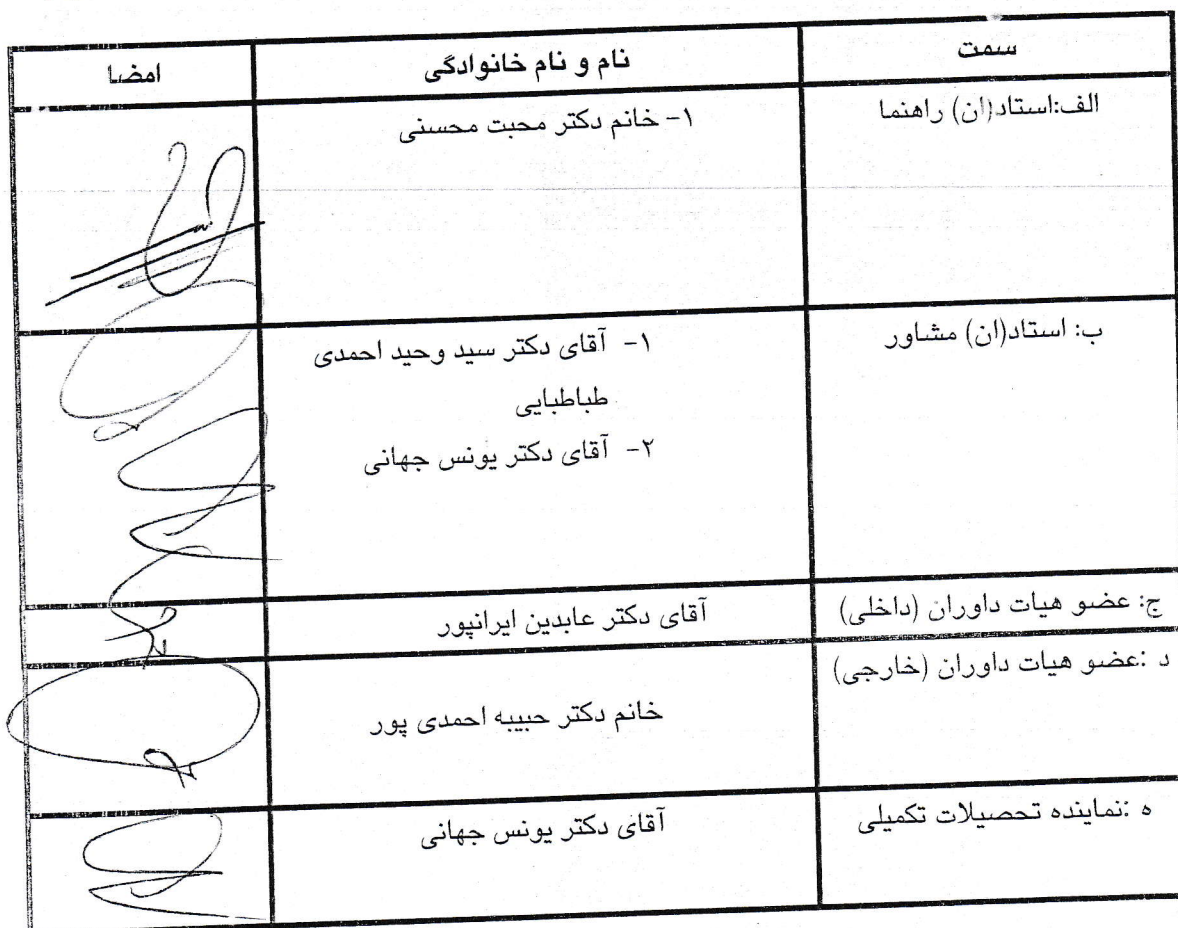 سمت نام و نام خانوادگی امضا
الف:استاد(ان) راهنما ۱- خانم دکتر محبت محسنی
ب: استاد(ان) مشاور ۱- آقای دکتر سید وحید احمدی
طباطبایی
۲- آقای دکتر یونس جهانی
ج: عضو هیات داوران (داخلی) آقای دکتر عابدین ایرانپور
د :عضو هیات داوران (خارجی)
خانم دکتر حبیبه احمدی پور
ه :نماینده تحصیلات تکمیلی آقای دکتر یونس جهانی